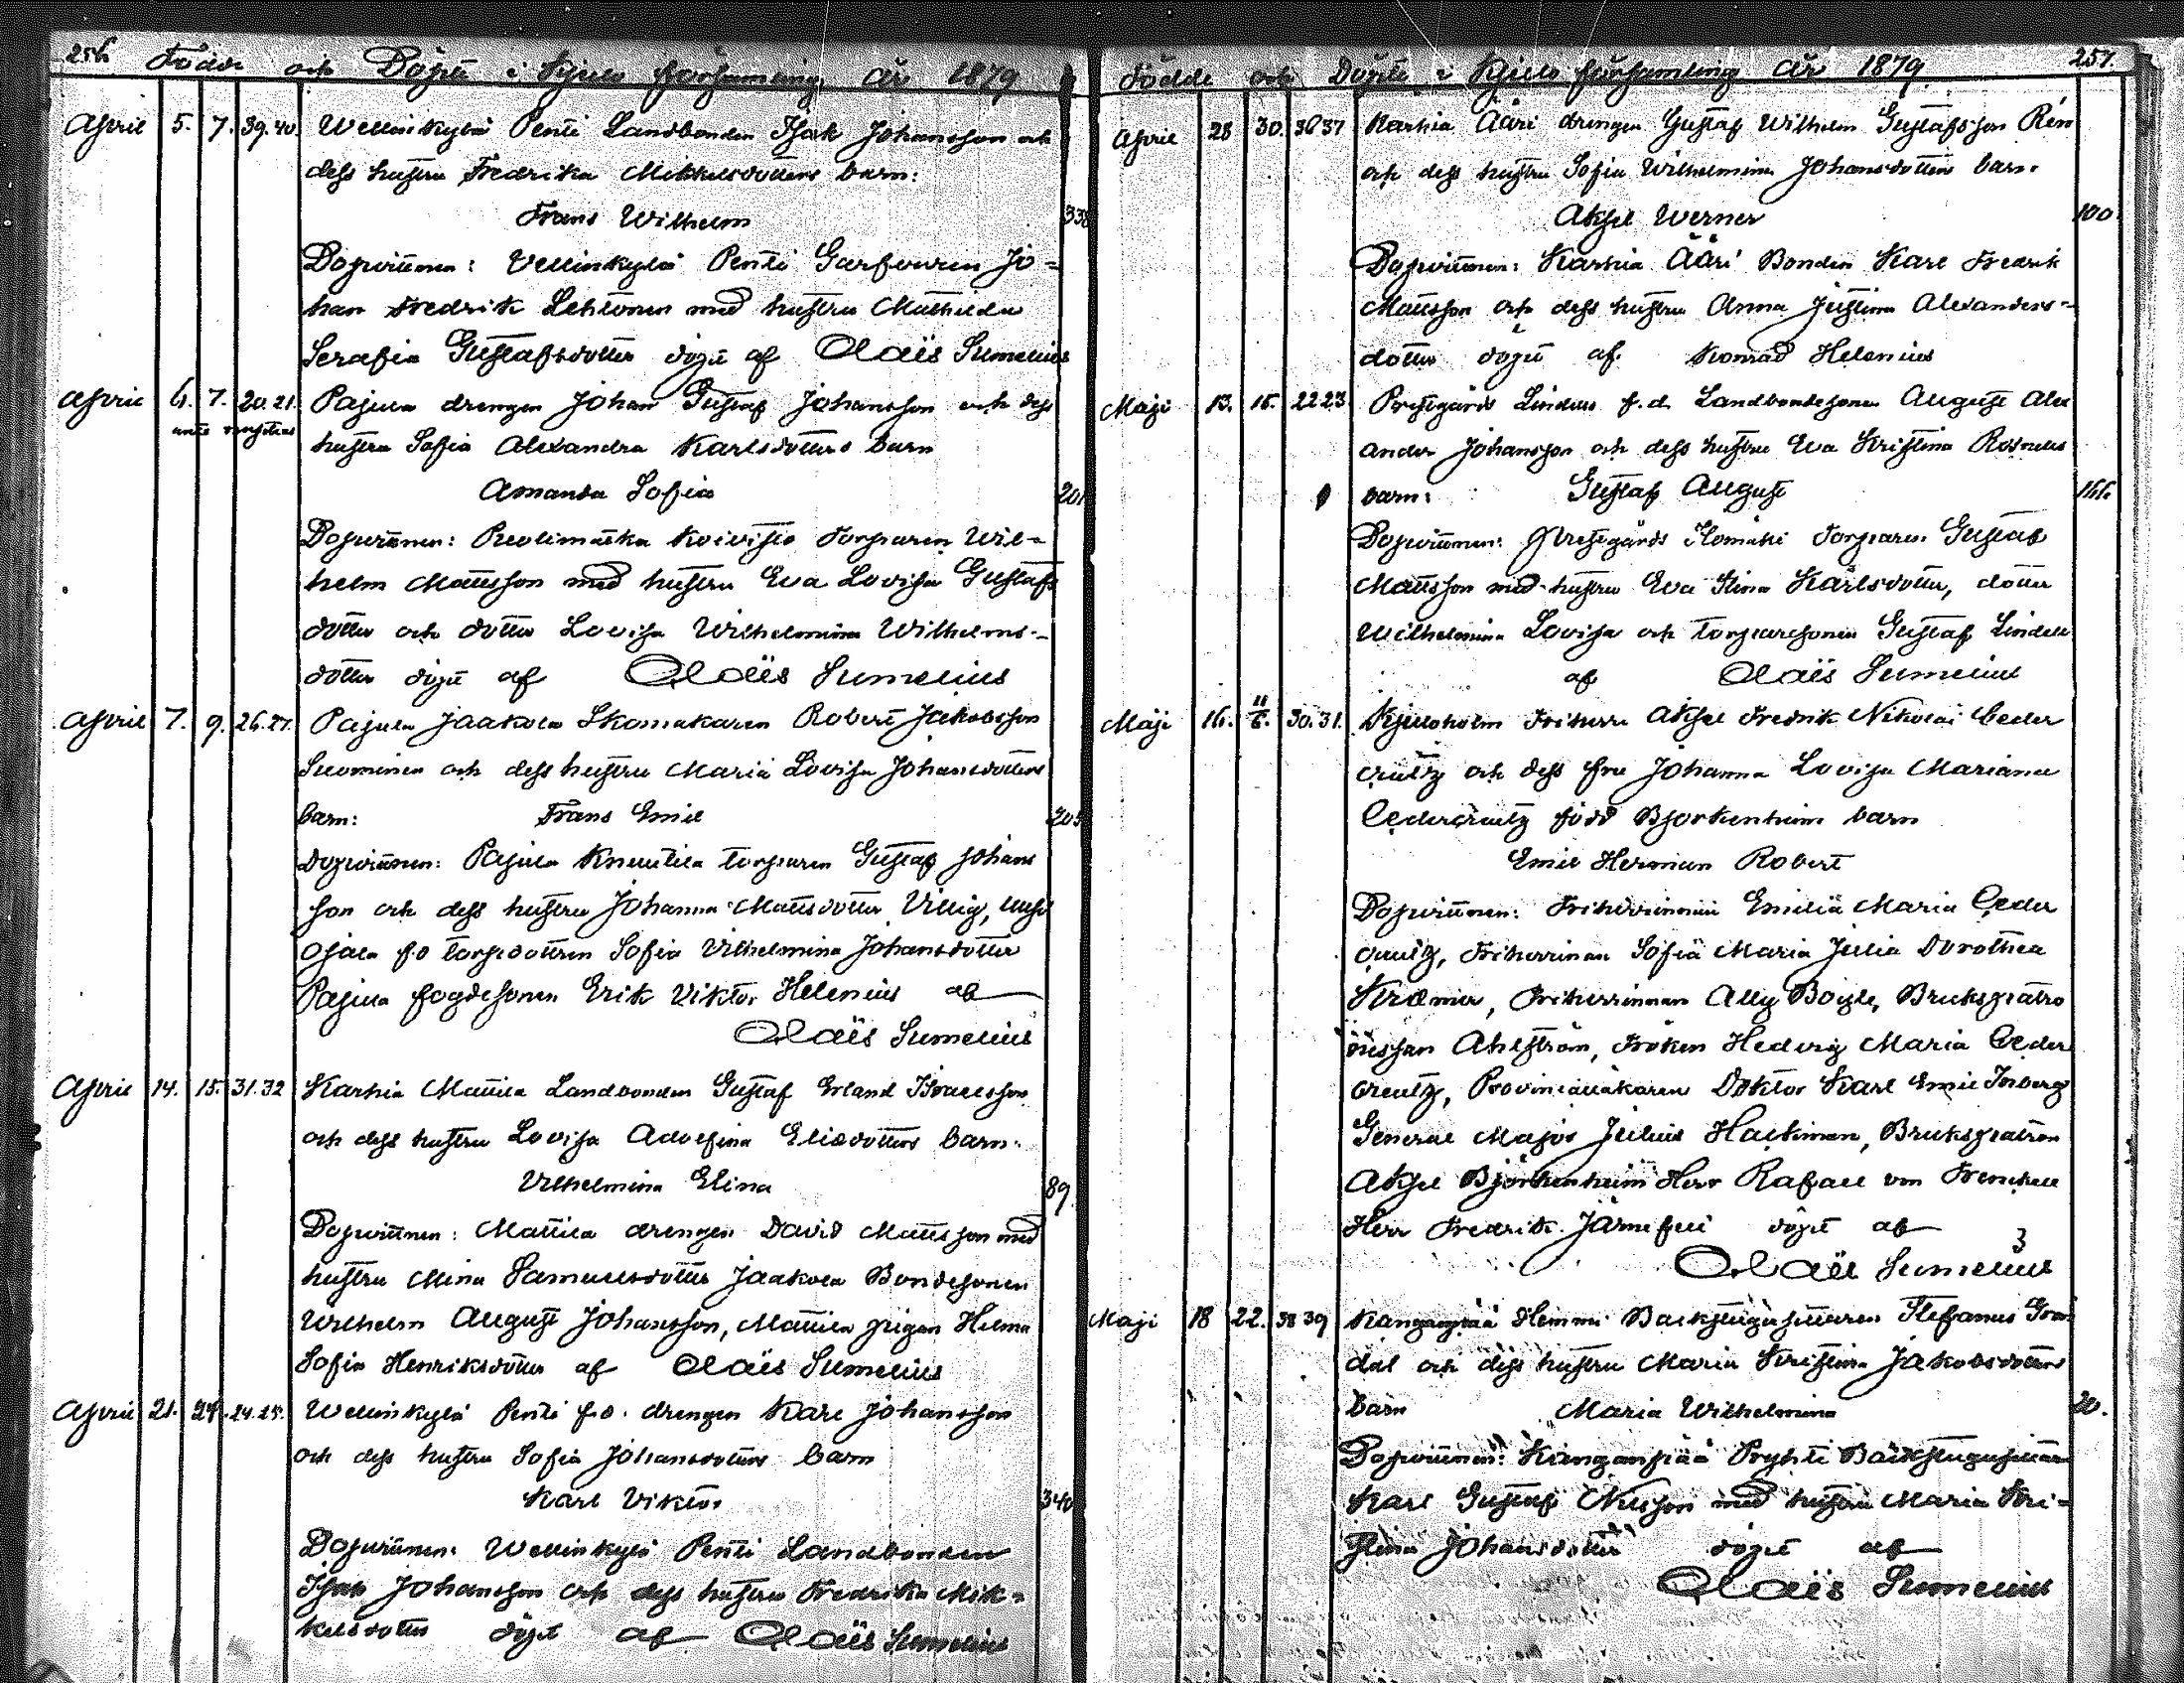 256 Födde och Döpte i Kjulo församling år 1879
April 5. 7. 39.40. Wellinkylä Pentti Landbonden Isak Johansson och
dess hustru Fredrika Mikkelsdotters barn:
Frans Wilhelm 338
Dopvittnen: Vellinkylä Pentti Garfvaren Jo=
han Fredrik Lehtonen med hustru Mathilda
Serafia Gustafsdotter döpt af Claës Sumelius
April 6. 7. 20.21. Pajula drengen Johan Gustaf Johansson och dess
hustru Sofia Alexandra Karlsdotters barn
Amanda Sofia 201
Dopvittnen: Koivisto Torparen Wil=
helm Mattsson med hustru Eva Lovisa Gustafs
dotter och dotter Lovisa Wilhelmina Wilhelms=
dotter döpt af Claës Sumelius
April 7. 9. 26.27. Pajula Jaakola Skomakaren Robert Jakobsson
Suominen och dess hustru Maria Lovisa Johansdotters
barn: Frans Emil 205
Dopvittnen: Pajula Knuutila torparen Gustaf Johans
son och dess hustru Johanna Mattsdotter Villig,
Ojala f.d torpdottren Sofia Vilhelmina Johansdotter
Pajula fogdesonen Erik Viktor Helenius af
Claës Sumelius
April 14. 15. 31.32 Karhia Mattila Landbonden Gustaf Erland Israelsson
och dess hustru Lovisa Adolfina Eliedotters barn.
Vilhelmina Elina 89
Dopvittnen: Mattila drengen David Mattsson med
hustru Mina Samuelsdotter Jaakola Bondesonen
Wilhelm August Johansson, Mattila pigan Hilma
Sofia Henriksdotter af Claës Sumelius
April 21. 24. 24.25. Wellinkylä Pentti f.d. drengen Karl Johansson
och dess hustru Sofia Johansdotters barn
Karl Viktor 340
Dopvittnen: Wellinkylä Pentti Landbonden
Isak Johansson och dess hustru Fredrika Mik=
kelsdotter döpt af Claës Sumelius
Födde och Döpte i Kjulo församling år 1879 257.
April 28 30. 36 37 Karhia Ääri drengen Gustaf Wilhelm Gustafsson Rén
och dess hustru Sofia Wilhelmina Johansdotters barn.
Aksel Werner 100
Dopvittnen: Karhia Ääri Bonden Karl Fredrik
Mattsson och dess hustru Anna Justina Alexanders=
dotter döpt af Konrad Helenius
Maji 13. 15. 22.23 Prestgårds Lindus f.d. Landbondesonen August Alex
ander Johansson och dess hustru Eva Kristina
barn: Gustaf August 166
Dopvittnen: Prestgårds Ilomäki Torparen Gustaf
Mattsson med hustru Eva Stina Karlsdotter, dotter
Wilhelmina Lovisa och torparesonen Gustaf Lindell
af Claës Sumelius
Maji 16. 11/6. 30.31. Kjuloholm Friherre Aksel Fredrik Nikolai Ceder
creutz och dess fru Johanna Lovisa Mariana
Cedercreutz född Bjorkenheim barn
Emil Herman Robert
Dopvittnen: Friherrinnan Emilia Maria Ceder
creutz, Friherrinan Sofia Maria Julia Dorothea
Kræmer, Friherrinnan Ally Boije, Bruksgiatro
nessan Ahlström, Fröken Hedvig Maria Ceder
creutz, Provincialläkaren Doktor Karl Emil Isberg
General Major Julius Hackman, Brukspatron
Aksel Björkenheim Herr Rafael von Frenckell
Herr Fredrik Järnefelt döpt af
Claës Sumelius
Maji 18 22. 38 39 Kanganpää Hemmi Backstugusittaren Stefanus Gran
dal och dess hustru Maria Kristina Jakobsdotters
barn Maria Wilhelmina 20.
Dopvittnen: Kanganpää Pryhti Backstugusittaren
Karl Gustaf Nilsson med hustru Maria Kri=
stina Johansdotter döpt af
Claës Sumelius